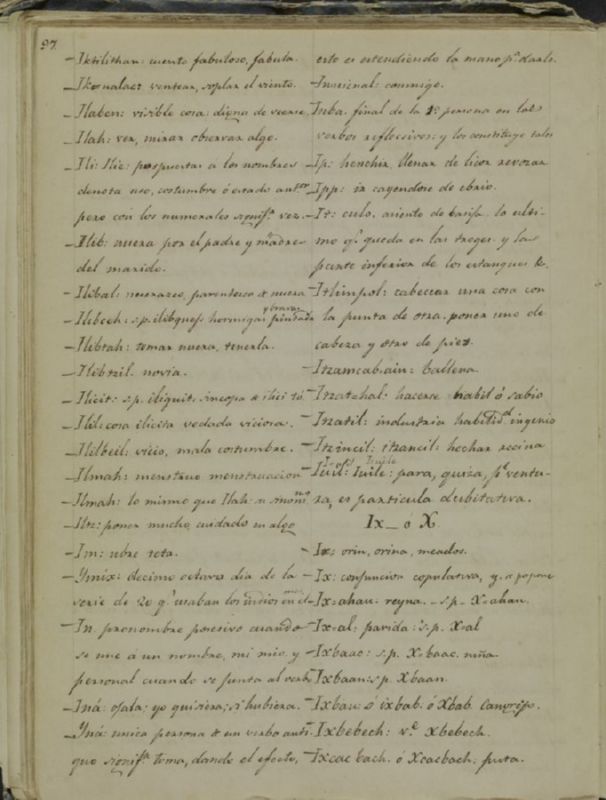 97.
–Iktilithan: cuento fabuloso, fabula.
–Ikonalaet ventear, soplar el viento.
–Ilaben: visible cosa: digna de veerse.
–Ilah: ver, mirar observar algo.
–Ili: Ilic: pospuestas a los nombres
denota uso, costumbre ó estado
pero con los numerales signifª vez.
–Ilib: nuera por el padre y madre
del marido.
–Ilibal: parentesco nuera
–Ilibech: s.p. hormigas
–Ilibtah: tomar nuera, tenerla.
–Ilibtzil. novia.
–Ilicit: s.p. sincopa
–Ilil: cosa ilicita vedada viciosa.
–Ililbeil: vicio, mala costumbre.
–Ilmah: menstruo menstruacion
–Ilmah: lo mismo que Ilah
–Iltz: poner mucho cuidado en algo
–Im: ubre teta.
–Ymix: decimo octavo dia de la
serie de 20 q.e usaban los indios
–In pronombre posesivo cuando
se une á un nombre, mi mio y
personal cuando se junta al verbo
–Iná: ojala; yo quisiera; si hubiera.
–Yná: unica persona de un verbo
que signifª toma, dando el efecto,
esto es estendiendo la mano pª darle.
–Inicnal: conmigo.
–Inba, final de la 1ª persona en los
verbos reflecsivos: y los constituye tales
–Ip: henchir, llenar de licor revozar
–Ipp: ir cayendose de ebrio.
–It: culo, asiento de basija. lo ulti-
mo q.e queda en las troges, y la
parte inferior de los estanques &.
–Itlimpol: cabecear una cosa con
la punta de otra. poner uno de
cabeza y otro de pies.
–Itzamcab.ain: ballena.
–Itzatzhal: hacerse habil ó sabio
–Itzatil: industria habilidd ingenio
–Itzincil: itzancil: hechar recina
–Iuil: Iuile: para, quiza, pr ventu-
ra, es particula dubitativa.
Ix_ o X.
–Ix: orin, orina, meados.
–Ix: conjuncion copulativa, y.
–Ix-ahau: reyna. – s.p. X-ahau.
–Ix-al: parida: s.p. X-al
–Ixbaac: s.p. X-baac. niña.
–Ixbaan: s.p. Xbaan.
–Ixbau: o ixbab. ó Xbab. Cangrejo.
–Ixbebech: v.e Xbebech.
–Ixcacbach. ó Xcacbach: puta.